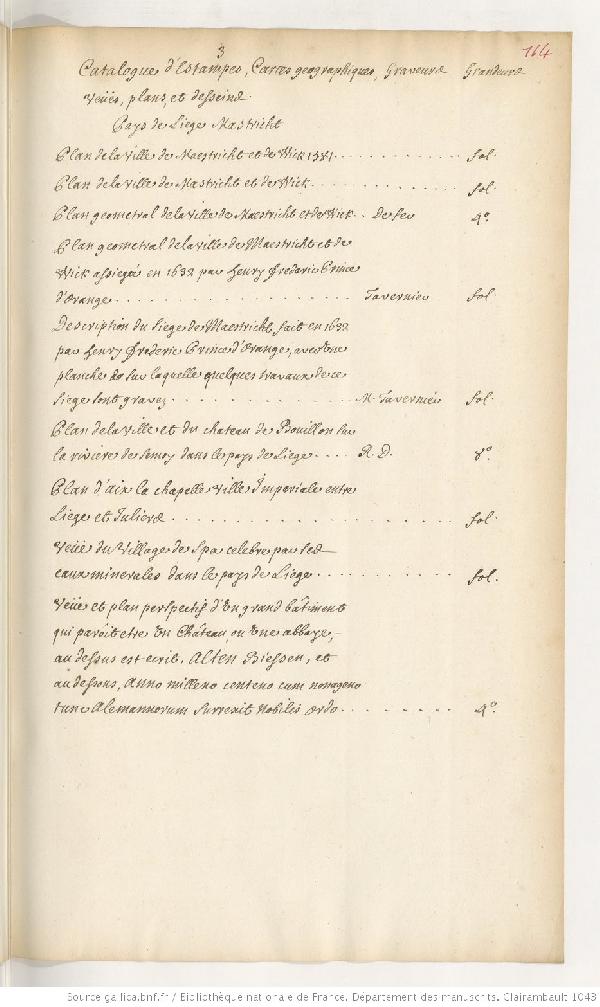 3
164
Catalogue d'Estampes, Cartes geographiques, Graveurs Grandeurs
Veües, plans, et desseins
Pays de Liege Mastricht
Plan de la ville de Maestricht et de Wick . . . . . . . . . . fol.
Plan de la ville de Mastricht et de Wick . . . . . . . . . . fol.
Plan geometral de la ville de Maestricht et de Wick . . De fer 4º.
Plan geometral de la ville de Maestricht et de
Wick assiegé en 1632 par Henry Frederic Prince
d'Orange . . . . . . . . . . Tavernier fol.
Description du siege de Maestricht, fait en 1632
par Henry Frederic Prince d'Orange, avec une
planche sur laquelle quelques travaux de ce
siege sont gravez . . . . . . . . . . M. Tavernier fol.
Plan de la ville et du chateau de Bouillon sur
la riviere de Semoy dans le pays de Liege . . . . R. D. 8º.
Plan d'aix la chapelle ville Imperiale entre
Liege et Juliers . . . . . . . . . . fol.
Veüe du Village de Spa celebre par ses
eaux minerales dans le pays de Liege . . . . . . . . . . fol.
Veüe et plan perspectif d'un grand bâtiment
qui paroît etre un Château, ou une abbaye,
au dessus est ecrit, Alten Biessen, et
au dessous, Anno milleno centeno cum nonageno
tunc Alemannorum surrexit nobilis ordo . . . . . . . . 4º.
Source gallica.bnf.fr / Bibliothèque nationale de France. Département des manuscrits. Clairambault 1043